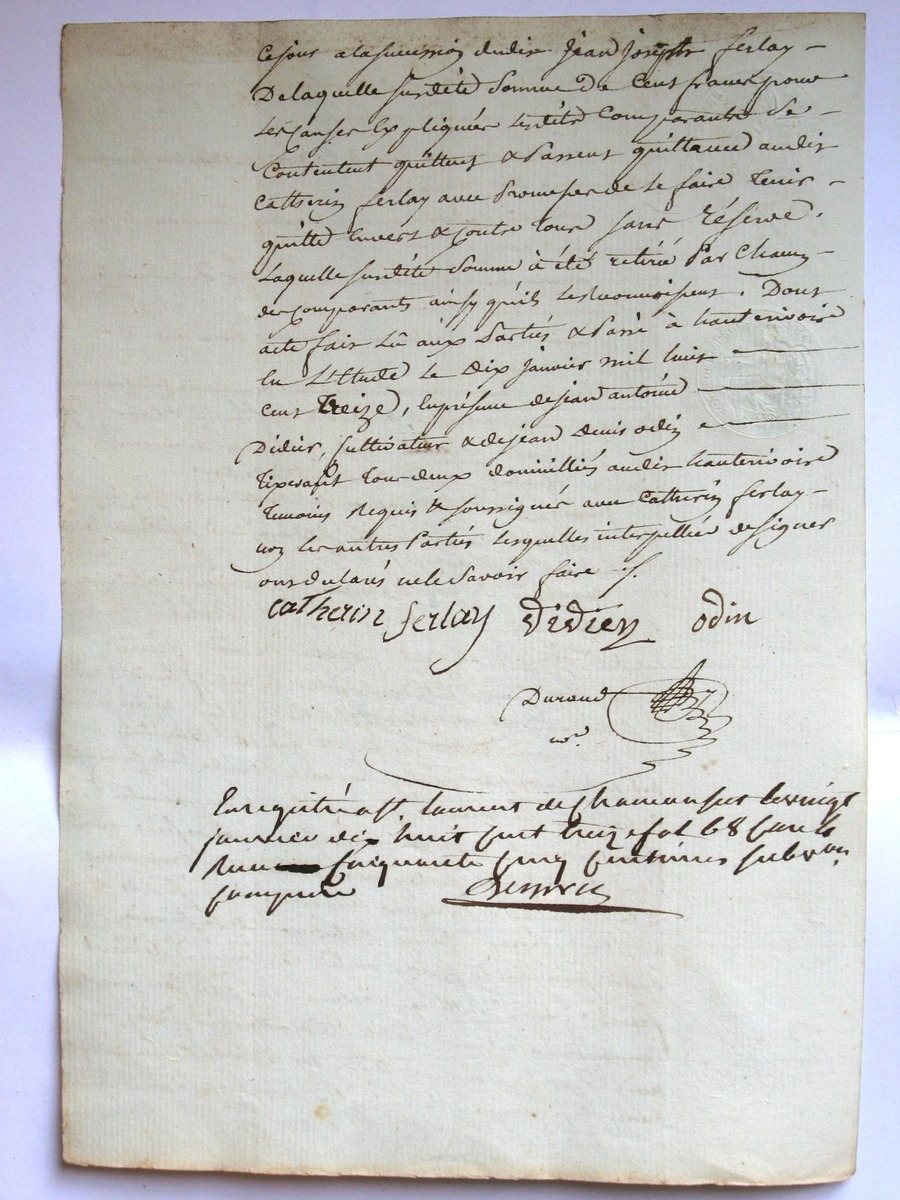 Ce jour a la succession dudit Jean Joseph ferlay –
De laquelle susdite Somme De Cent francs pour
Les Causes Expliquées Lesdits Comparants Se –
Contentent quittent & Passent quittance audit
Catherin ferlay avec Promesse de le faire Tenir –
quitte Envers & Contre Tous sans Réserve.
Laquelle susdite Somme à été retiré Par Chacun –
des Comparants ainsy qu'ils Le Reconnoissent. Dont
acte fait Lû aux Parties & Passé à hauterivoire
En L'Etude Le Dix Janvier mil huit
Cent Treize, En présence de jean antoine
Didier, Cultivateur & de jean Denis odin
Tixerant Tous deux domicilliés audit hauterivoire
Temoins Requis & soussignés avec Catherin ferlay –
non Les autres Parties Lesquelles interpellées de signer
ont déclarés ne le Savoir faire ./.
Catherin ferlay Didier odin
Durand
nre
Enregistré a St. laurent de chamousset le vingt
janvier dix huit cent treize fol 68
cinquante cinq centimes subvon
comprise